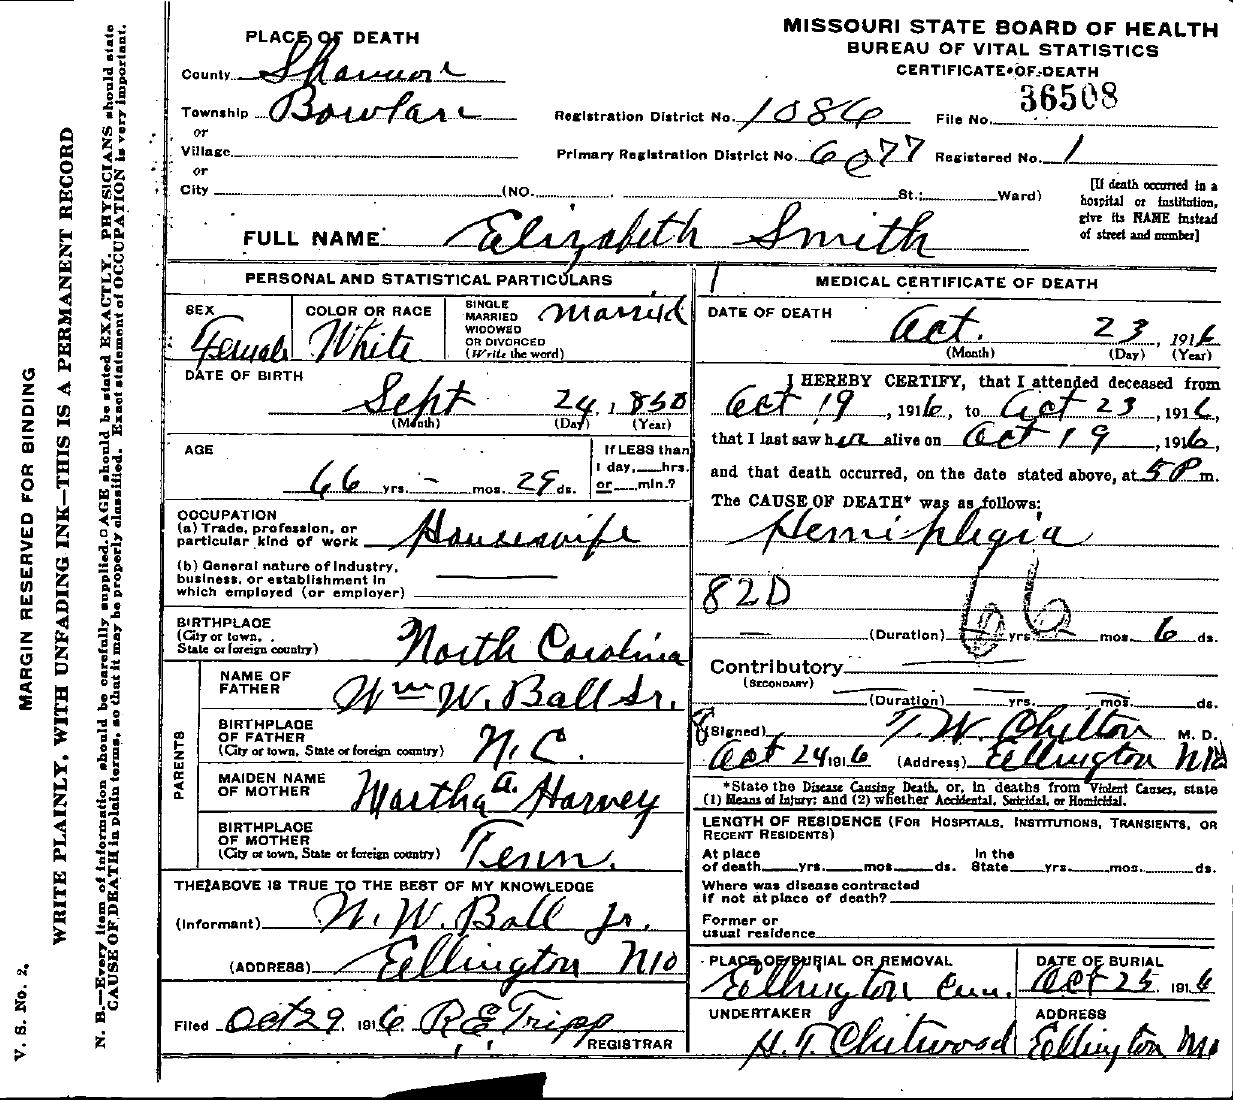 MISSOURI STATE BOARD OF HEALTH
BUREAU OF VITAL STATISTICS
CERTIFICATE OF DEATH
36508
PLACE OF DEATH
County Shannon
Township Bowlan
or
Village
or
City (NO. St.; Ward)
Registration District No. 1086 File No.
Primary Registration District No. 6077 Registered No. 1
[If death occurred in a
hospital or institution,
give its NAME instead
of street and number]
FULL NAME Elizabeth Smith
PERSONAL AND STATISTICAL PARTICULARS
SEX
Female
COLOR OR RACE
White
SINGLE
MARRIED
WIDOWED
OR DIVORCED
(Write the word)
Married
DATE OF BIRTH
Sept 24, 1850
(Month) (Day) (Year)
AGE
66 yrs. - mos. 29 ds.
If LESS than
1 day,___hrs.
or___min.?
OCCUPATION
(a) Trade, profession, or
particular kind of work Housewife
(b) General nature of industry,
business, or establishment in
which employed (or employer)
BIRTHPLACE
(City or town,
State or foreign country)
North Carolina
PARENTS
NAME OF
FATHER
Wm W. Ball Sr.
BIRTHPLACE
OF FATHER
(City or town, State or foreign country)
N.C.
MAIDEN NAME
OF MOTHER
Martha A. Harvey
BIRTHPLACE
OF MOTHER
(City or town, State or foreign country)
Tenn.
THE ABOVE IS TRUE TO THE BEST OF MY KNOWLEDGE
(Informant) W. W. Ball Jr.
(ADDRESS) Ellington Mo
Filed Oct 29 1916 R E Tripp
REGISTRAR
MEDICAL CERTIFICATE OF DEATH
DATE OF DEATH
Oct. 23, 1916
(Month) (Day) (Year)
I HEREBY CERTIFY, that I attended deceased from
Oct 19, 1916, to Oct 23, 1916,
that I last saw her alive on Oct 19, 1916,
and that death occurred, on the date stated above, at 5 P m.
The CAUSE OF DEATH* was as follows:
Hemiplegia
82D
66
(Duration) yrs. mos. 6 ds.
Contributory
(SECONDARY)
(Duration) yrs. mos. ds.
8
(Signed) T. W. Chilton M. D.
Oct 24 1916 (Address) Ellington Mo
*State the Disease Causing Death, or, in deaths from Violent Causes, state
(1) Means of Injury; and (2) whether Accidental, Suicidal, or Homicidal.
LENGTH OF RESIDENCE (FOR HOSPITALS, INSTITUTIONS, TRANSIENTS, OR
RECENT RESIDENTS)
At place
of death___yrs.___mos.___ds.
In the
State___yrs.___mos.___ds.
Where was disease contracted
if not at place of death?
Former or
usual residence
PLACE OF BURIAL OR REMOVAL
Ellington Cem.
DATE OF BURIAL
Oct 25, 1916
UNDERTAKER
H. T. Chitwood
ADDRESS
Ellington Mo
MARGIN RESERVED FOR BINDING
WRITE PLAINLY, WITH UNFADING INK—THIS IS A PERMANENT RECORD
N. B.—Every item of information should be carefully supplied. AGE should be stated EXACTLY. PHYSICIANS should state
CAUSE OF DEATH in plain terms, so that it may be properly classified. Exact statement of OCCUPATION is very important.
V. S. No. 2.